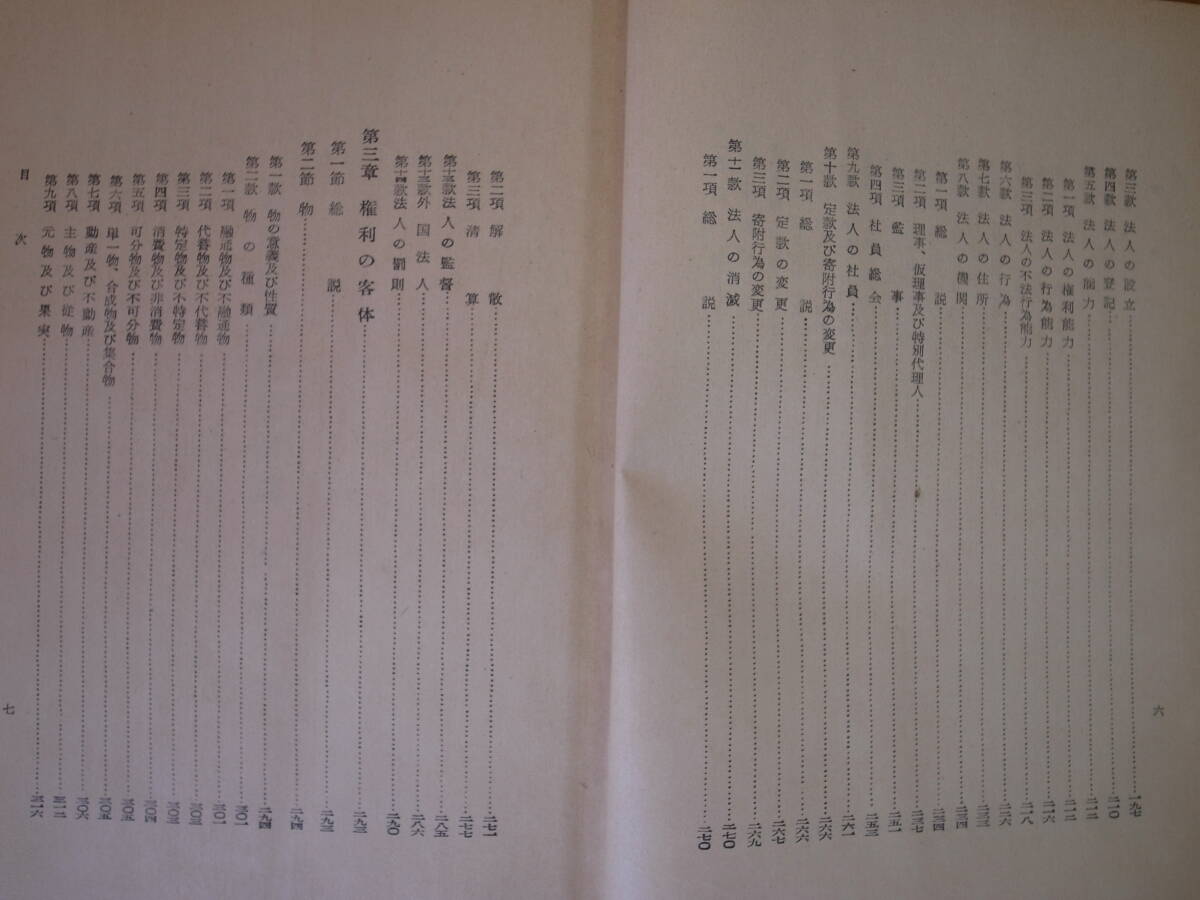 第三款 法人の設立……一九七
第四款 法人の登記……二一〇
第五款 法人の能力……二一二
第一項 法人の権利能力……二一二
第二項 法人の行為能力……二一六
第三項 法人の不法行為能力……二一八
第六款 法人の行為……二二六
第七款 法人の住所……二三三
第八款 法人の機関……二三四
第一項 総説……二三四
第二項 理事、仮理事及び特別代理人……二三七
第三項 監事……二五一
第四項 社員総会……二五三
第九款 法人の社員……二六一
第十款 定款及び寄附行為の変更……二六六
第一項 総説……二六六
第二項 定款の変更……二六八
第三項 寄附行為の変更……二六九
第十一款 法人の消滅……二七〇
第一項 総説……二七〇
六
第二項 解散……二七一
第三項 清算……二七七
第十二款 法人の監督……二八五
第十三款 外国法人……二八六
第十四款 法人の罰則……二九〇
第三章 権利の客体……二九三
第一節 総説……二九三
第二節 物……二九四
第一款 物の意義及び性質……二九四
第二款 物の種類……三〇一
第一項 融通物及び不融通物……三〇一
第二項 代替物及び不代替物……三〇三
第三項 特定物及び不特定物……三〇三
第四項 消費物及び非消費物……三〇四
第五項 可分物及び不可分物……三〇五
第六項 単一物、合成物及び集合物……三〇五
第七項 動産及び不動産……三〇六
第八項 主物及び従物……三一二
第九項 元物及び果実……三一六
目次
七